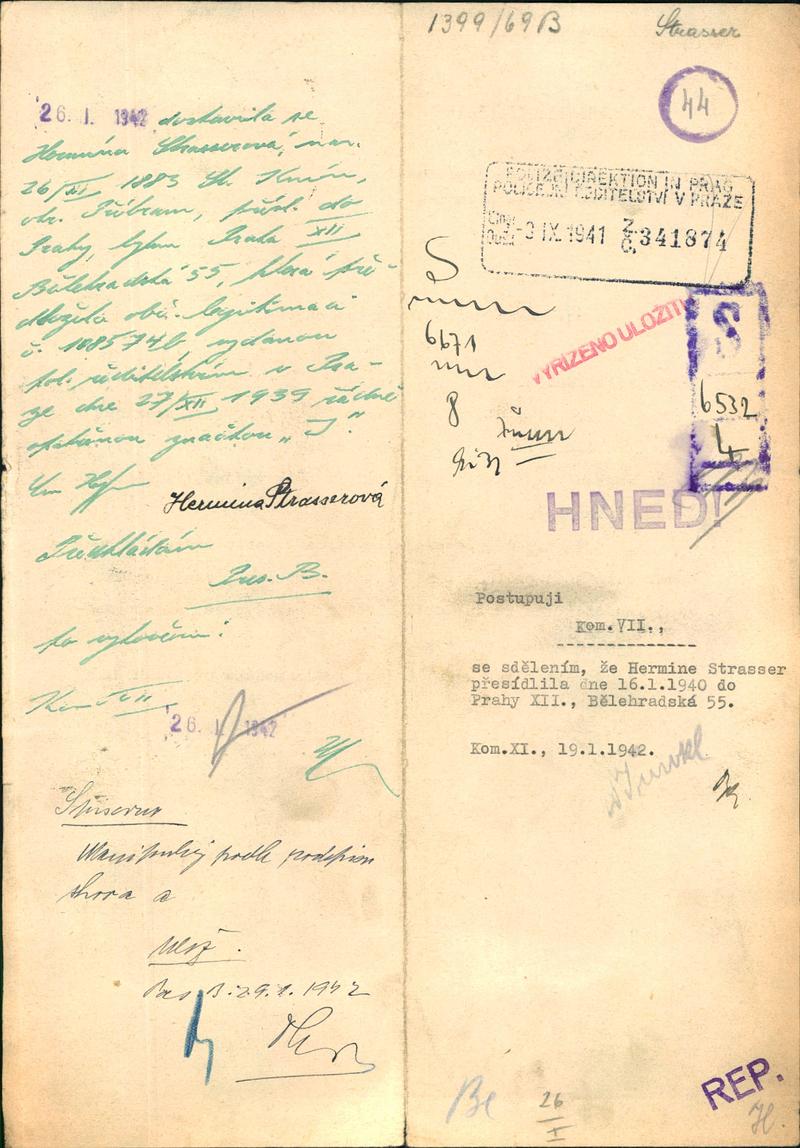 26. I. 1942 dostavila se
Hermína Strasserová, nar.
26/XI 1883 St. Knín,
okr. Příbram, přísl. do
Prahy, bytem Praha XII
Bělehradská 55, která pře-
dložila obč. legitimaci
č. 10857/4b, vydanou
pol. ředitelstvím v Pra-
ze dne 27/XII 1939 řádně
opatřenou značkou „J".
Hermina Strasserová
Předkládám
Pres. B.
po vyřízení.
Kom VII
26. I. 1942
podle
shora a
Pres B. 29.1. 1942
1399/69B
Strasser
44
POLIZEIDIREKTION IN PRAG
POLICEJNÍ ŘEDITELSTVÍ V PRAZE
-3 IX. 1941 341874
VYŘÍZENO ULOŽITI
6671
8
6532
4
HNED!
Postupuji
kom.VII.,
se sdělením, že Hermine Strasser
přesídlila dne 16.1.1940 do
Prahy XII., Bělehradská 55.
Kom.XI., 19.1.1942.
REP.
26/I